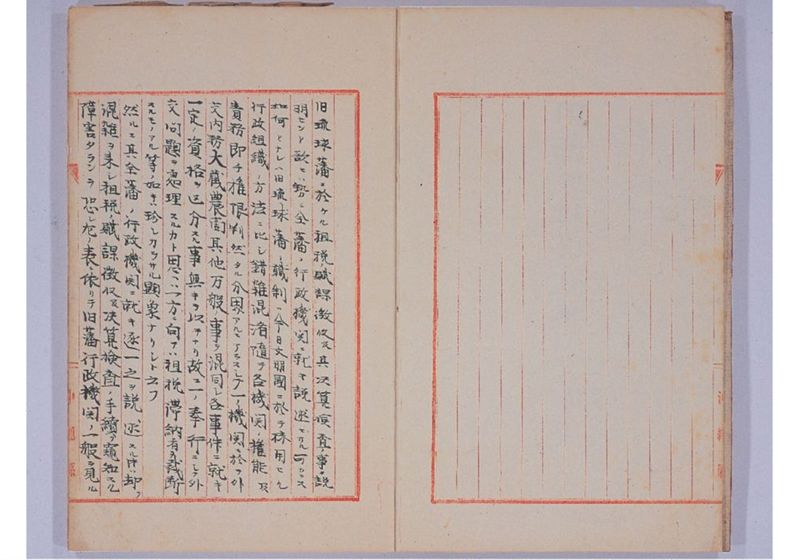 旧琉球藩ニ於ケル租税賦課徴収及其決算検査ノ事ヲ説
明セント欲セハ勢ヒ全藩ノ行政機関ニ就キ説述セサル可ラス
如何トナレハ旧琉球藩ノ職制ハ今日文明国ニ於テ採用セル
行政組織ノ方法ニ比シ錯雑混淆随テ各機関ノ権能及
責務即チ権限判然タル分界アルニアラスシテ一ノ機関ニ於テ外
交内務大蔵農商其他万般ノ事ヲ混同シ各事件ニ就キ
一定ノ資格ヲ区分スル事無キヲ以テナリ故ニ一ノ奉行ニシテ外
交問題ヲ処理スルカト思ヘハ一方ニ向テハ租税滞納者ヲ裁断
スルモノアル等ノ如キハ珍シカラサル顕象ナリシト云フ
然ルニ其全藩ノ行政機関ニ就キ逐一之ヲ説述スル時ハ却テ
混雑ヲ来シ租税ノ賦課徴収及決算検査ノ手続ヲ窺知スル
障害タランヲ恐レ左ノ表ニ依リテ旧藩行政機関ノ一般ヲ見ル